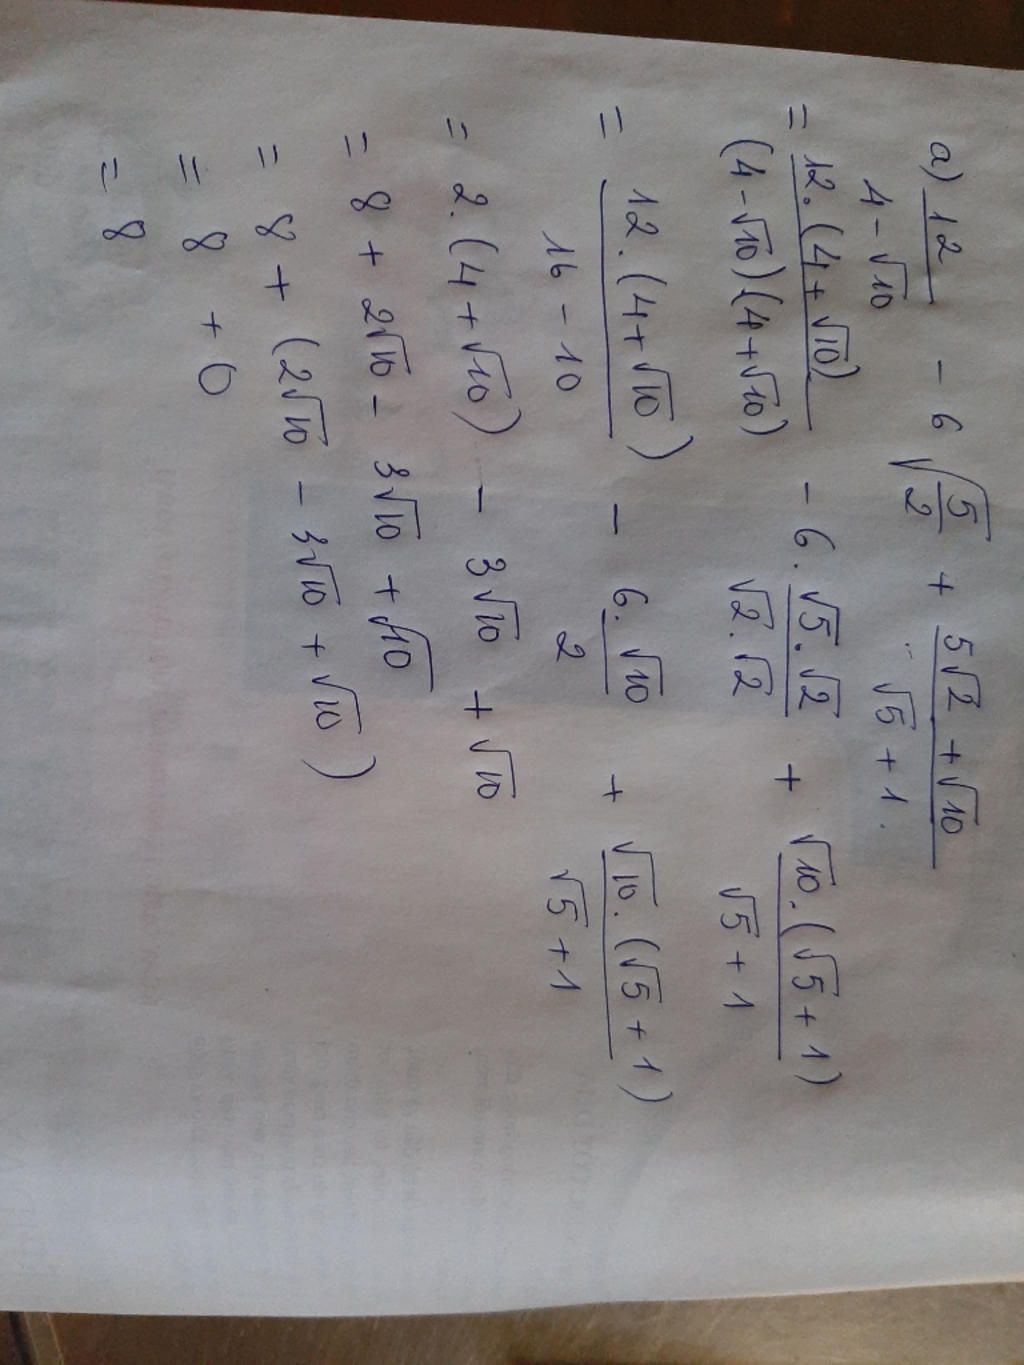 a) 12/(4 - √10) - 6√(5/2) + (5√2 + √10)/(√5 + 1)
= 12.(4 + √10)/((4 - √10)(4 + √10)) - 6.(√5.√2)/(√2.√2) + √10.(√5 + 1)/(√5 + 1)
= 12.(4 + √10)/(16 - 10) - 6.√10/2 + √10.(√5 + 1)/(√5 + 1)
= 2.(4 + √10) - 3√10 + √10
= 8 + 2√10 - 3√10 + √10
= 8 + (2√10 - 3√10 + √10)
= 8 + 0
= 8